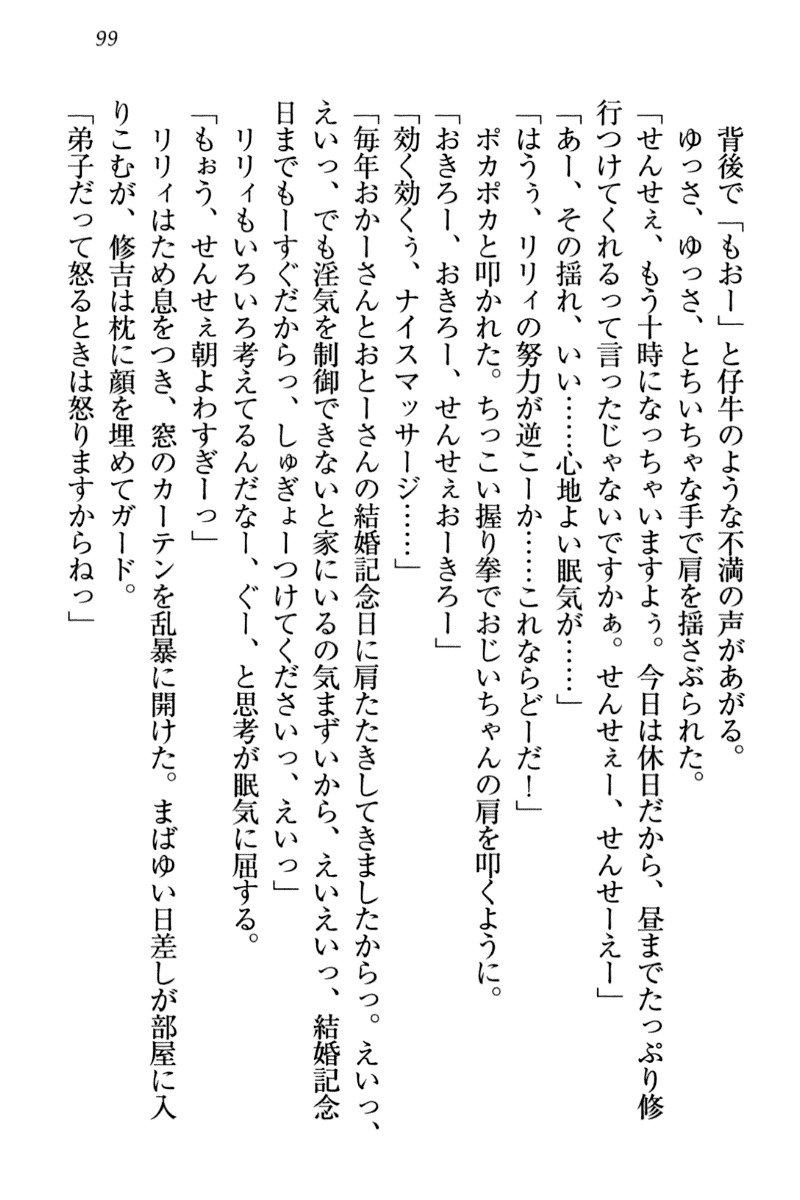 99
背後で「もおー」と仔牛のような不満の声があがる。
ゆっさ、ゆっさ、とちいちゃな手で肩を揺さぶられた。
「せんせぇ、もう十時になっちゃいますよぅ。今日は休日だから、昼までたっぷり修
行つけてくれるって言ったじゃないですかぁ。せんせぇー、せんせーえー」
「あー、その揺れ、いい……心地よい眠気が……」
「はうぅ、リリィの努力が逆こーか……これならどーだ！」
ポカポカと叩かれた。ちっこい握り拳でおじいちゃんの肩を叩くように。
「おきろー、おきろー、せんせぇおーきろー」
「効く効くぅ、ナイスマッサージ……」
「毎年おかーさんとおとーさんの結婚記念日に肩たたきしてきましたからっ。えいっ、
えいっ、でも淫気を制御できないと家にいるの気まずいから、えいえいっ、結婚記念
日までもーすぐだからっ、しゅぎょーつけてくださいっ、えいっ」
リリィもいろいろ考えてるんだなー、ぐー、と思考が眠気に屈する。
「もぉう、せんせぇ朝よわすぎーっ」
リリィはため息をつき、窓のカーテンを乱暴に開けた。まばゆい日差しが部屋に入
りこむが、修吉は枕に顔を埋めてガード。
「弟子だって怒るときは怒りますからねっ」